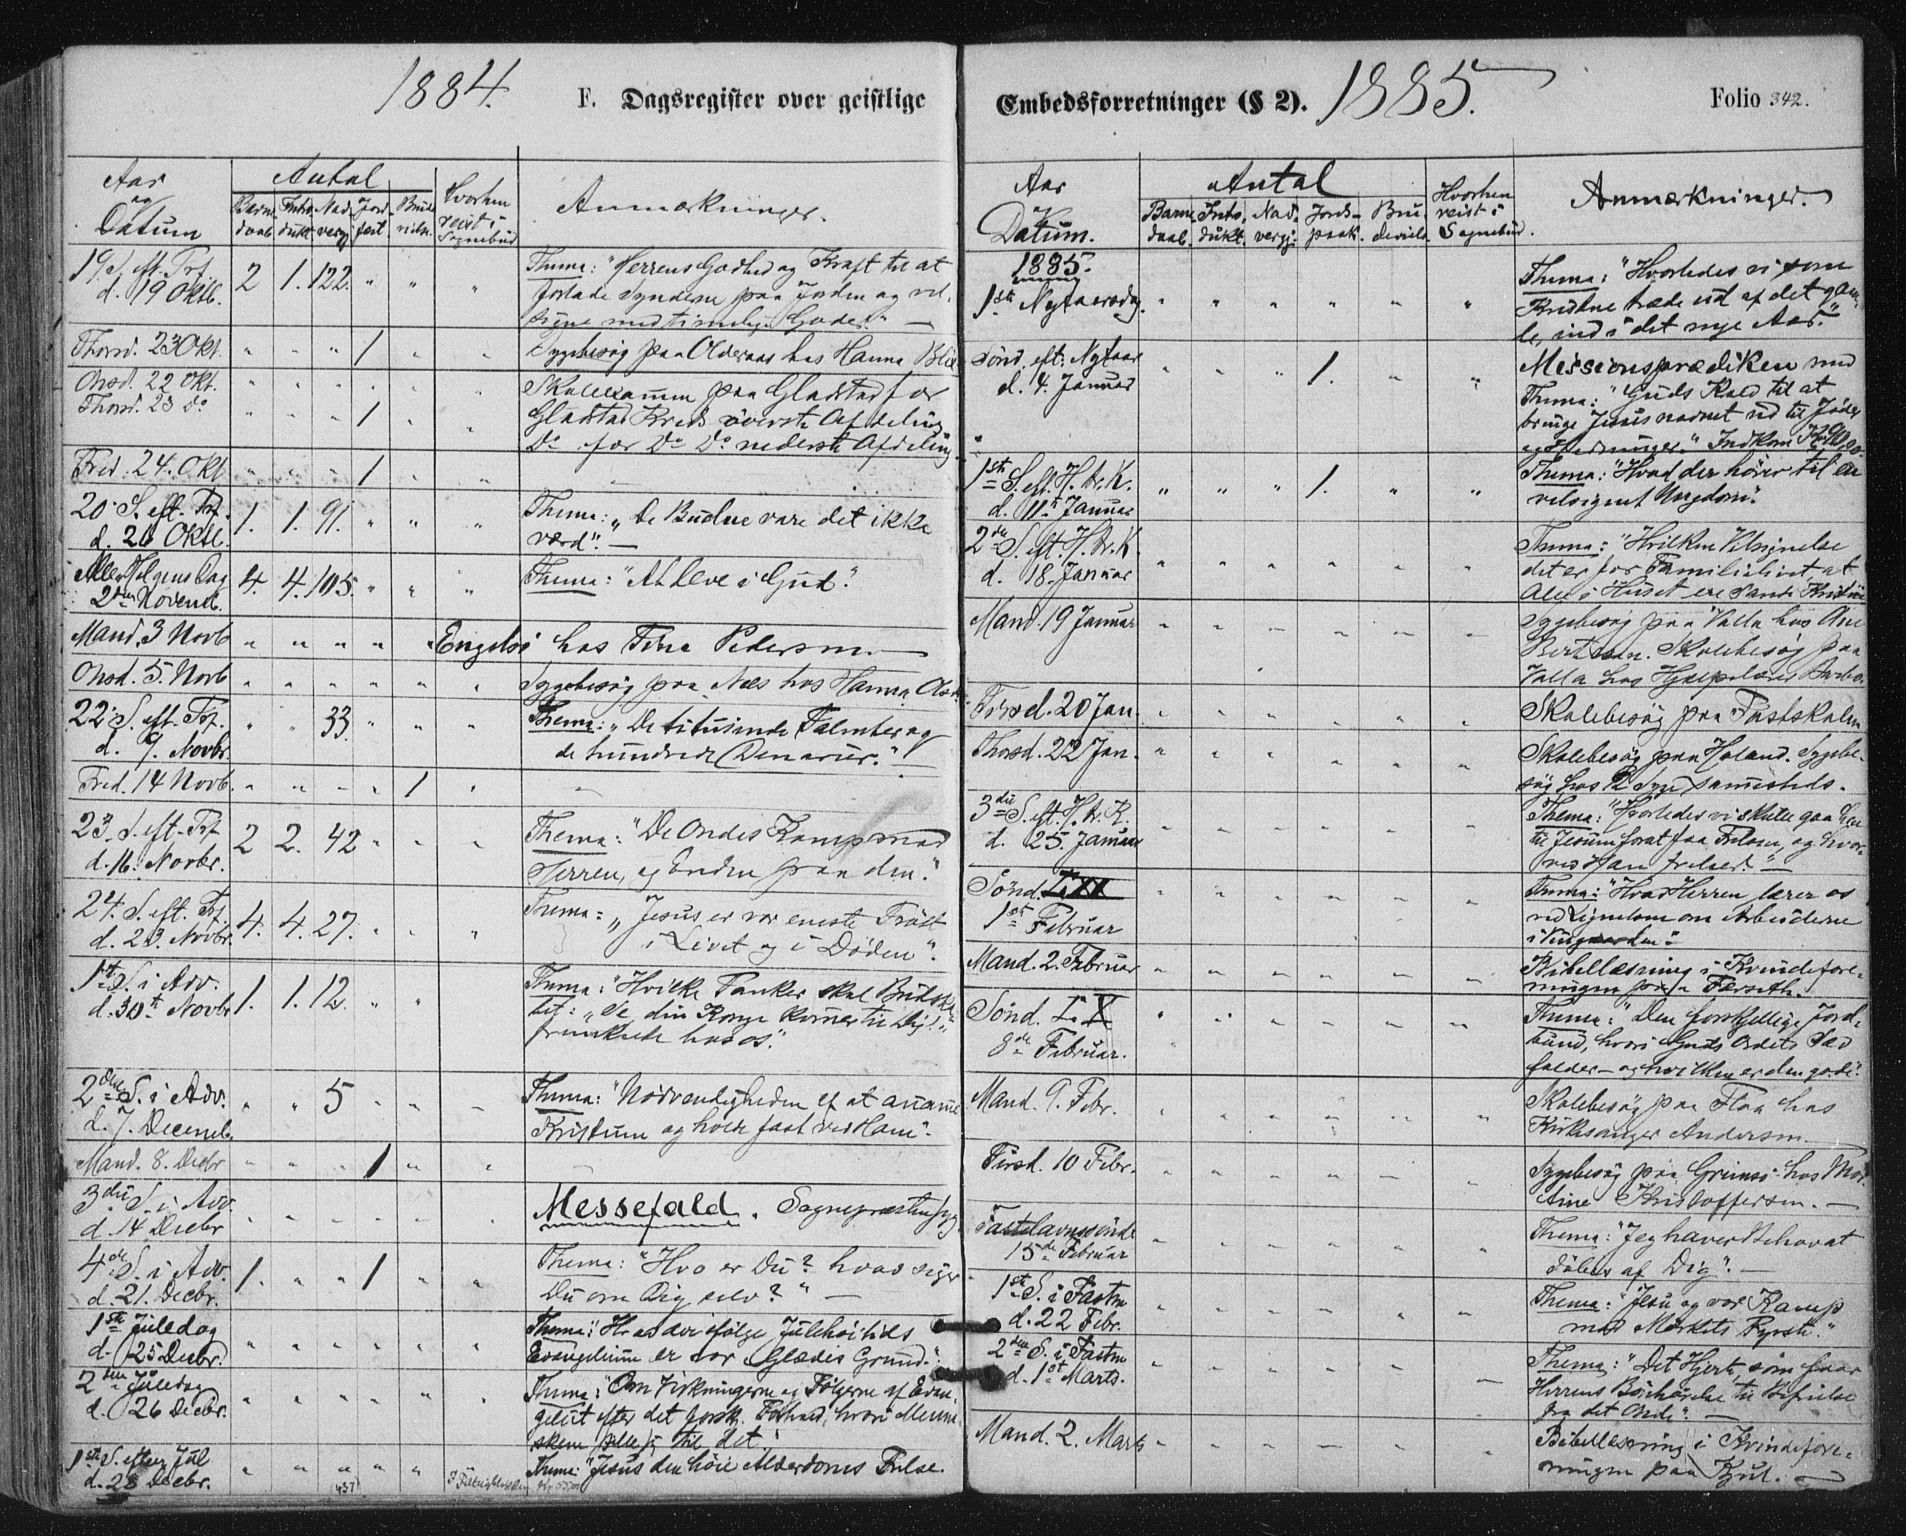 1884.
F. Dagsregister over geistlige
Aar og Datum
Antal
Barne daab
Intro dukt.
Nad verg
Jord fæst
Brude vielse
Hvorhen reist i Sognebud
Anmærkninger.
19 S. eft. Trf. d. 19 Oktb. 2 1. 122. " " "
Thema: "Herrens Godhed og Kraft til at
forlade Synderne paa Jorden og vel-
signe med timelige Goder." —
Thorsd. 23 Okt. " " " 1 " "
Sygebesøg paa Olderaas hos Hanna
Onsd. 22 Okt. " " " " " "
Thorsd. 23 Do " " " 1 " "
Skoleexamen paa Gladstad for
Gladstad Kreds øverste Afdeling
Do for Do Do nederste Afdeling
Fred. 24. Okt " " " 1 " "
20 S. eft. Trf. d. 26 Oktb. 1. 1. 91. " " "
Thema: "De Budne vare det ikke
værd". —
Alle Helgens Dag 2den Novemb. 4. 4. 105. " " "
Thema: "At leve i Gud".
Mand. 3 Novb " " " " "
hos Pedersen. —
Onsd. 5. Novb " " " " " "
Sygebesøg paa Næs hos Hanna
22 S. eft. Trf. d. 9. Novbr. " " 33. " " "
Thema: "De titusinde Talenter og
de hundrede Denarier."
Fred. 14 Novb. " " " " 1 "
23. S. eft. Trf d. 16. Novbr. 2 2. 42 " " "
Thema: "De Ondes Kamp mod
Herren, og Enden paa den".
24. S. eft. Trf. d. 23. Novbr. 4. 4. 27. " " "
Thema: "Jesus er vor eneste Trøst
i Livet og i Døden".
1ste S. i Adv. d. 30te Novbr 1. 1. 12. " "
Thema: "Hvilke Tanker skal Budska-
bet: "Se, din Konge kommer til Dig!"
fremkalde hos os".
2den S. i Adv. d. 7. Decemb. " " 5 " " "
Thema: "Nødvendigheden af at annamme
Kristum og holde fast ved Ham".
Mand. 8. Decbr " " " 1 " "
3die S. i Adv. d. 14 Decbr " " " " " "
Messefald. Sognepræsten syg
4de S. i Adv. d. 21. Decbr. 1. " " 1 " "
Thema: "Hvo er Du? hvad siger
Du om Dig selv?" —
1ste Juledag d. 25 Decbr. " " " " " "
Thema: "Hvad der ifølge Julehøitids
Evangelium er vor Glædes Grund".
2den Juledag d. 26 Decbr. " " " " " "
Thema: "Om Virkningerne og Følgerne af Evan-
geliet efter det forsk. Forhold, hvori Menne-
skene stille sig til det".
1ste S. efter Jul d. 28 Decbr. " " " " "
Thema: "Jesus den høie Alderdoms Frelse.
437

Embedsforretninger (§ 2).
1885.
Folio 342.
Aar og Datum.
Antal
Barne daab.
Intro. dukt.
Nad. vergj:
Jords- paak.
Bru- devielse
Hvorhen reist i Sognebud.
Anmærkninger.
1885.
1ste Nytaarsdag. " " " " " "
Thema: "Hvorledes vi som
Kristne træde ud af det gam-
le, ind i det nye Aar."
Sønd. eft. Nytaar d. 4. Januar " " " 1. " "
Missionsprædiken med
Thema: "Guds Kald til at
bringe Jesusnavnet ud til Jøder
og Hedninger." Indkom
1ste S. eft. H. tr. K. d. 11te Januar " " " 1. " "
Thema: "Hvad der hører til en
velsignet Ungdom".
2den S. eft. H. tr. K d. 18. Januar " " " " " "
Thema: "Hvilken Velsignelse
det er for Familielivet, at
Alle i Huset ere sande Kristne
Mand. 19 Januar " " " " " "
Sygebesøg paa Valla hos
Skolebesøg paa
Valla hos Hjælpelærer
Tirsd. 20 Jan. " " " " " "
Skolebesøg paa Fastskolen
Thorsd. 22 Jan. " " " " " "
Skolebesøg paa Høiand. Sygebe-
søg hos 2 Syge sammesteds.
3die S. eft. H. tr. K. d. 25. Januar " " " " " "
Thema: "Hvorledes vi skulle gaa hen
til Jesum forat faa Frelse, og hvor-
ved Han frelser." —
Sønd. 1ste Februar " " " " " "
Thema: "Hvad Herren lærer os
ved Lignelsen om Arbeiderne
i Vingaarden".
Mand. 2. Februar " " " " " "
Bibellæsning i Kvindefore-
ningen paa Færseth.
Sønd. 8de Februar. " " " " " "
Thema: "Den forskjellige Jord-
bund, hvori Guds Ordets Sæd
falder — og hvilken er den gode".
Mand. 9. Febr. " " " " " "
Skolebesøg paa Floa hos
Kirkesanger Andersen.
Tirsd. 10 Febr. " " " " " "
Sygebesøg paa Grimsø hos
Kristoffersen. —
Fastelavnssønd. 15de Februar " " " " " "
Thema: "Jeg haver Behov at
døbes af Dig". —
1ste S. i Fasten d. 22 Febr. " " " " " "
Thema: "Jesu og vor Kamp
mod Mørkets Fyrste."
2den S. i Fasten d. 1ste Marts. " " " " " "
Thema: "Det Hjerte, som faar
Herrens Bønhørelse til Befrielse
fra det Onde". —
Mand. 2. Marts " " " " " "
Bibellæsning i Kvindefore-
ningen paa